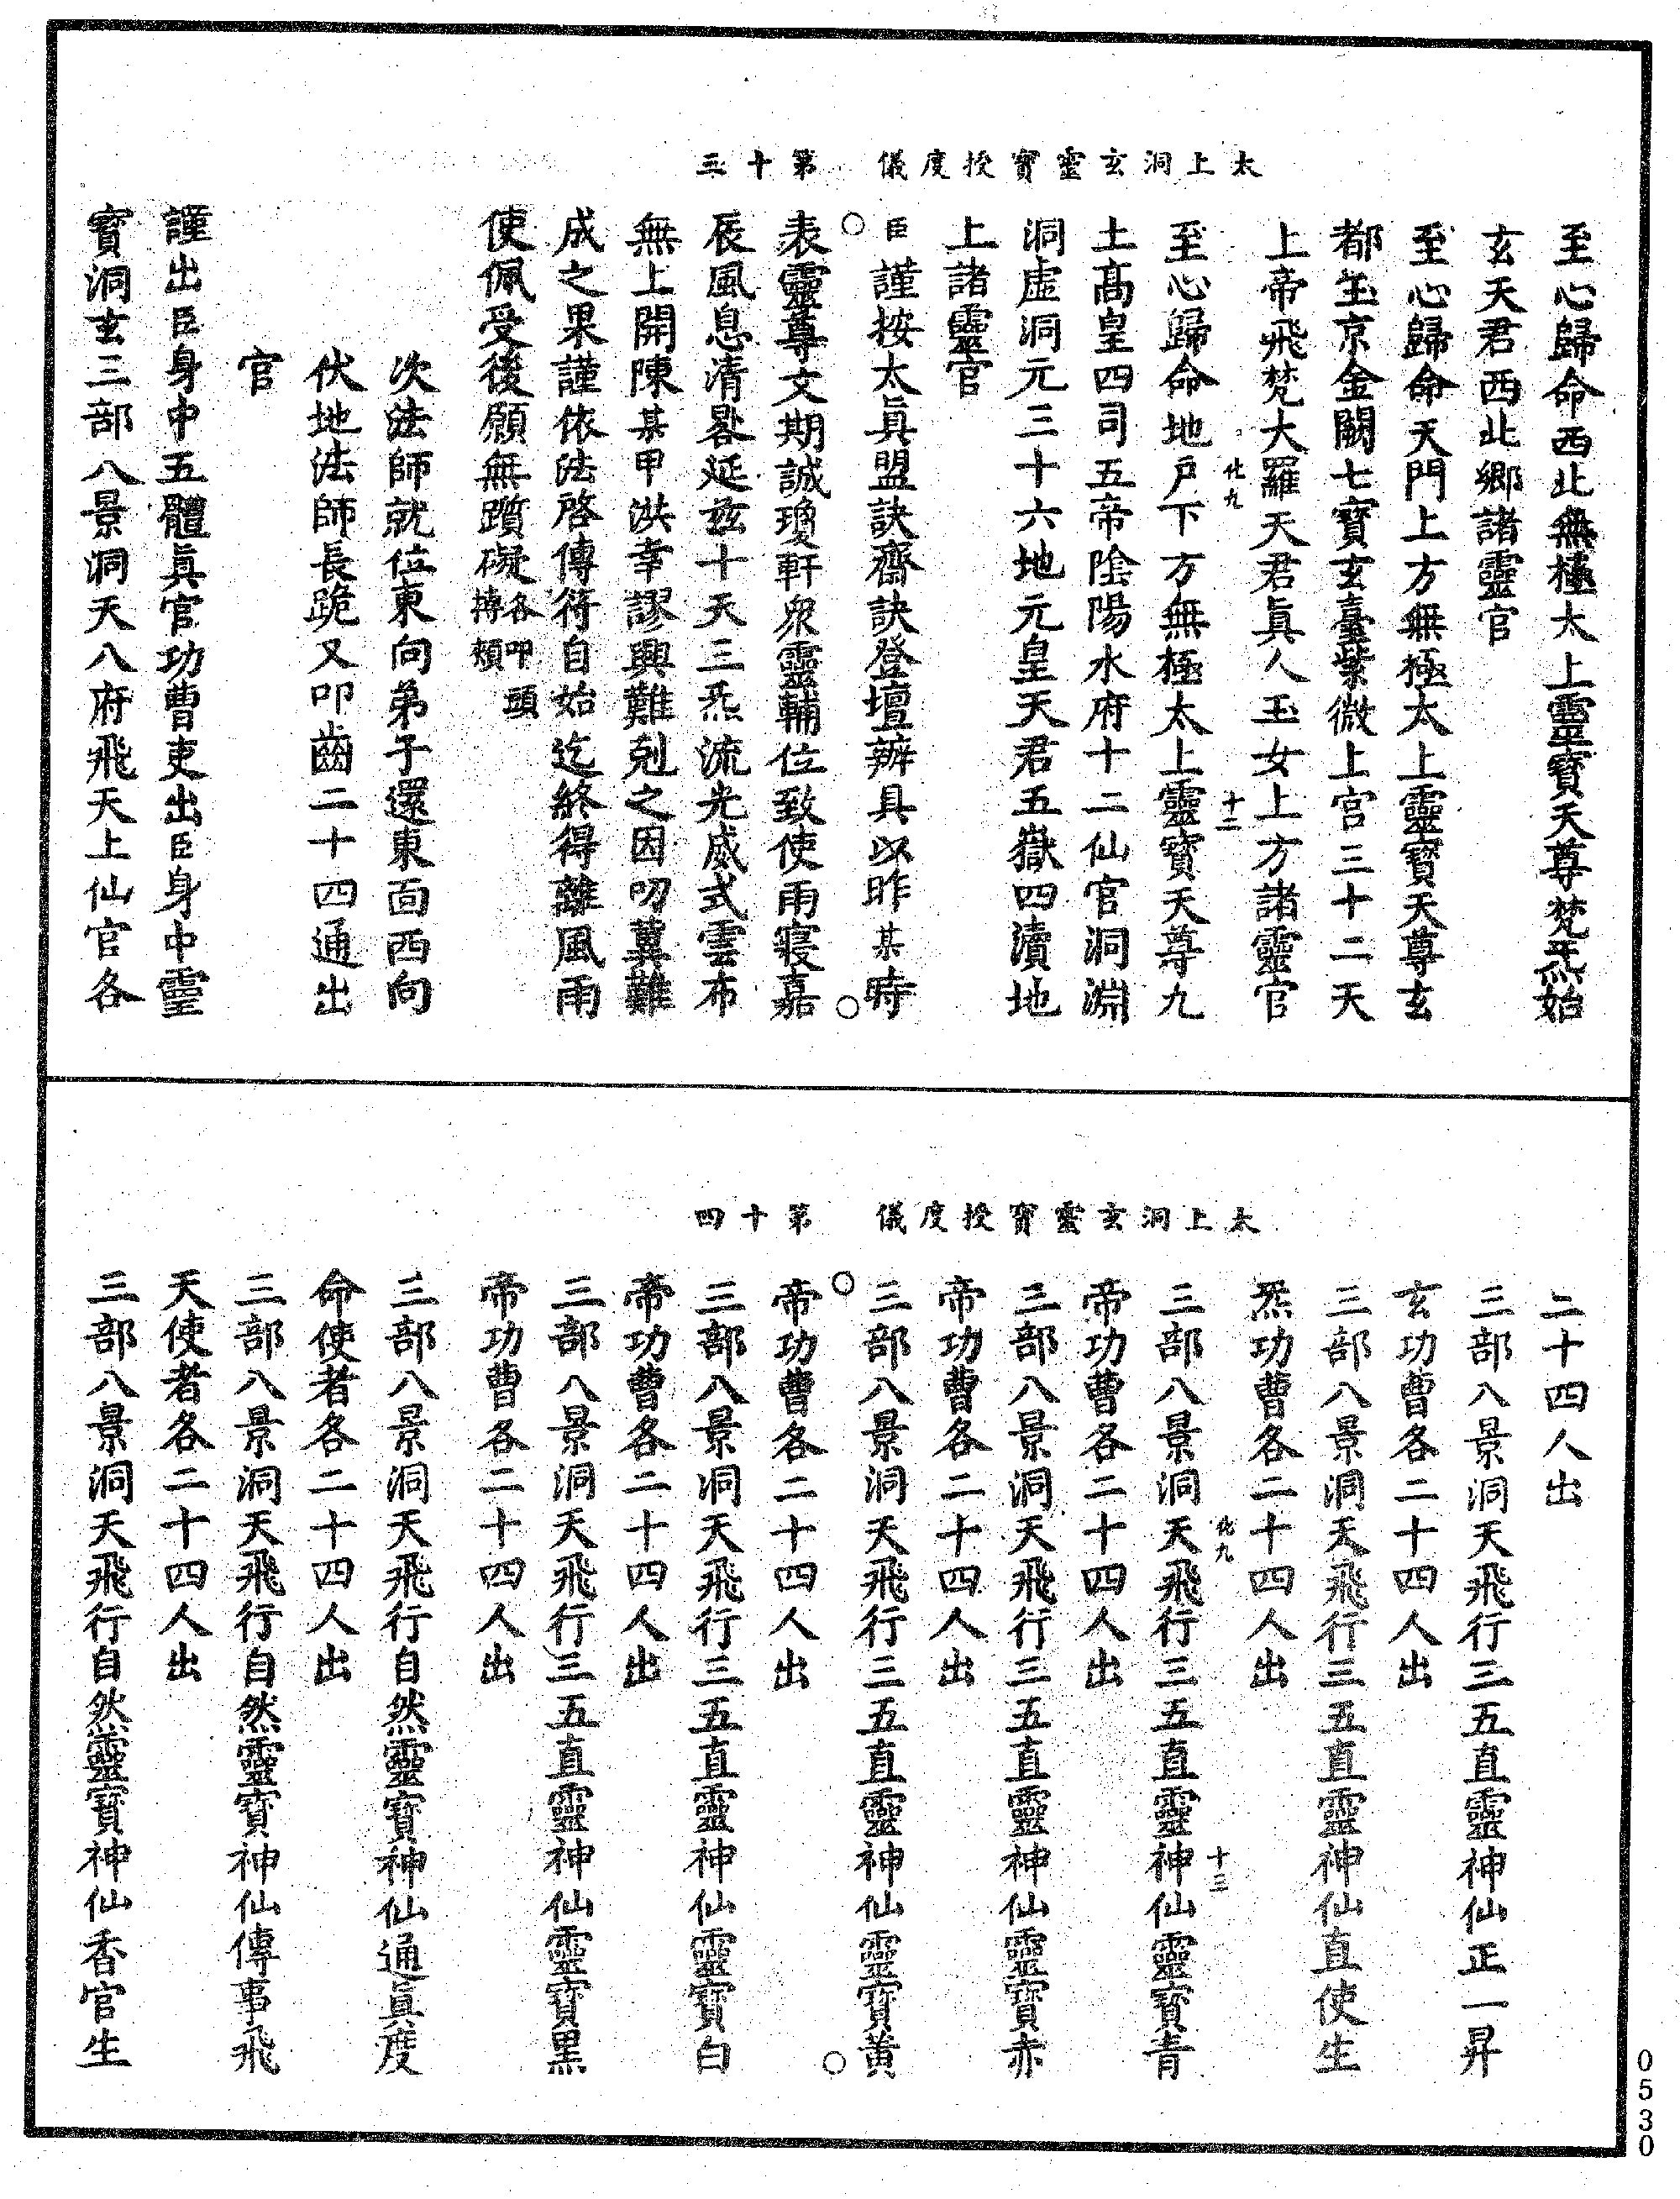 太上洞玄靈寶授度儀　第十三
至心歸命西北無極太上靈寶天尊梵炁始
玄天君西北鄉諸靈官
至心歸命天門上方無極太上靈寶天尊玄
都玉京金闕七寶玄臺紫微上宮三十二天
上帝飛梵大羅天君眞人玉女上方諸靈官
化九　十二
至心歸命地戸下方無極太上靈寶天尊九
土高皇四司五帝陰陽水府十二仙官洞淵
洞虛洞元三十六地元皇天君五嶽四瀆地
上諸靈官
臣謹按太眞盟訣齋訣登壇辦具以昨某時
表靈尊文期誠瓊軒衆靈輔位致使雨寢嘉
辰風息清晷延兹十天三炁流光威式雲布
無上開陳某甲洪幸謬興難剋之因叨冀難
成之果謹依法啓傳符自始迄終得離風雨
使佩受後願無躓礙各叩頭搏頰
次法師就位東向弟子還東面西向
伏地法師長跪又叩齒二十四通出
官
謹出臣身中五體眞官功曹吏出臣身中靈
寶洞玄三部八景洞天八府飛天上仙官各
太上洞玄靈寶授度儀　第十四
二十四人出
三部八景洞天飛行三五直靈神仙正一昇
玄功曹各二十四人出
三部八景洞天飛行三五直靈神仙直使生
炁功曹各二十四人出
化九　十三
三部八景洞天飛行三五直靈神仙靈寶青
帝功曹各二十四人出
三部八景洞天飛行三五直靈神仙靈寶赤
帝功曹各二十四人出
三部八景洞天飛行三五直靈神仙靈寶黃
帝功曹各二十四人出
三部八景洞天飛行三五直靈神仙靈寶白
帝功曹各二十四人出
三部八景洞天飛行三五直靈神仙靈寶黑
帝功曹各二十四人出
三部八景洞天飛行自然靈寶神仙通眞度
命使者各二十四人出
三部八景洞天飛行自然靈寶神仙傳事飛
天使者各二十四人出
三部八景洞天飛行自然靈寶神仙香官生
0530